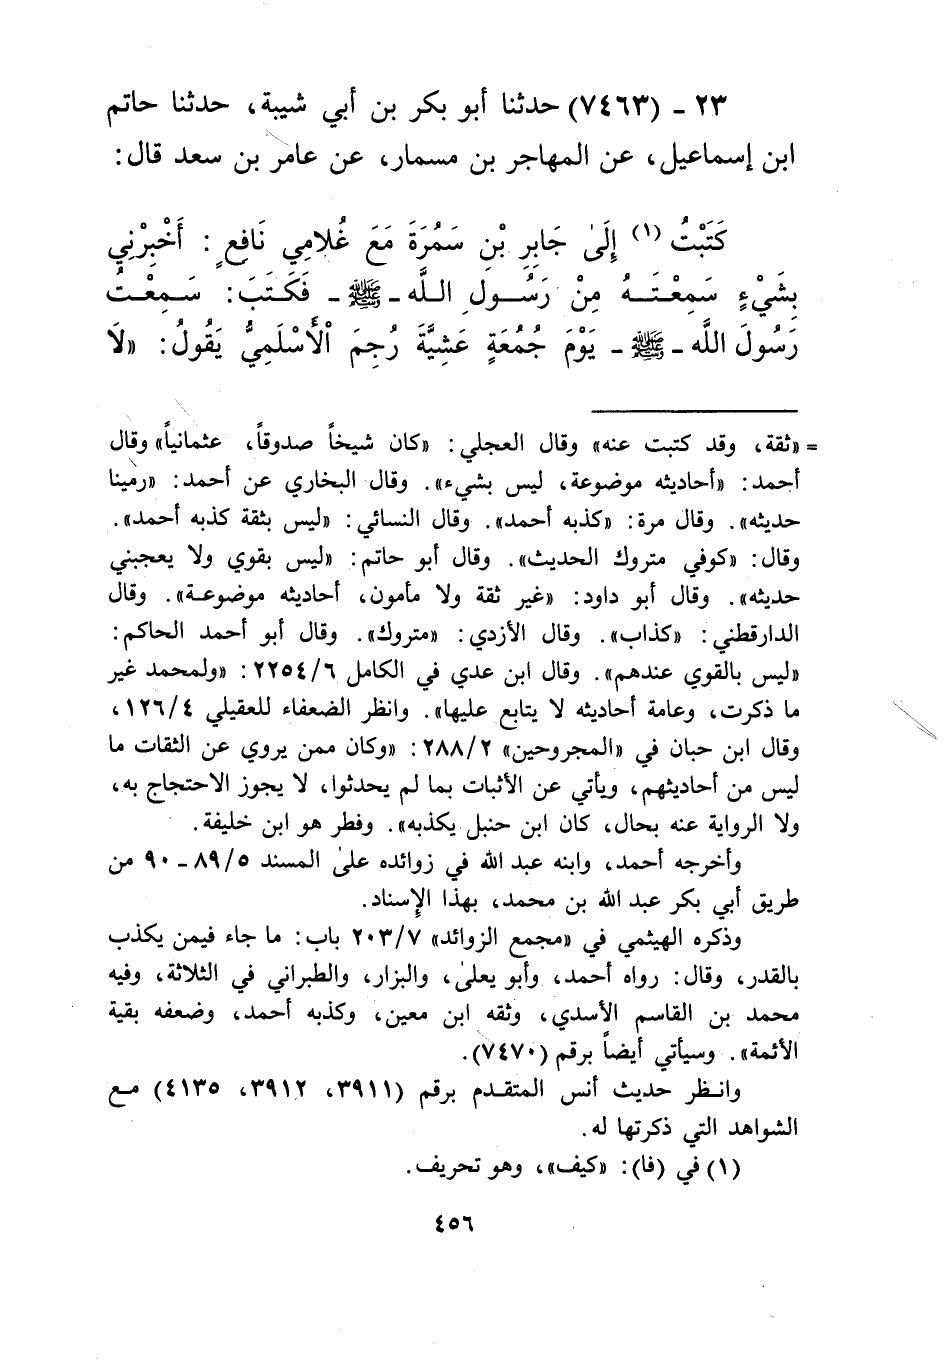 ٢٣ ـ (٧٤٦٣) حدثنا أبو بكر بن أبي شيبة، حدثنا حاتم
ابن إسماعيل، عن المهاجر بن مسمار، عن عامر بن سعد قال:
كَتَبْتُ (١) إِلَىٰ جَابِرِ بْنِ سَمُرَةَ مَعَ غُلَامِي نَافِعٍ : أَخْبِرْنِي
بِشَيْءٍ سَمِعْتَـهُ مِنْ رَسُـولِ اللَّـه ـ ﷺ ـ فَكَتَبَ: سَمِعْتُ
رَسُولَ اللَّه ـ ﷺ ـ يَوْمَ جُمُعَةٍ عَشِيَّةَ رُجِمَ الْأَسْلَمِيُّ يَقُولُ: «لَا
= «ثقة، وقد كتبت عنه» وقال العجلي: «كان شيخاً صدوقاً، عثمانياً» وقال
أحمد: «أحاديثه موضوعة، ليس بشيء». وقال البخاري عن أحمد: «رمينا
حديثه». وقال مرة: «كذبه أحمد». وقال النسائي: «ليس بثقة كذبه أحمد».
وقال: «كوفي متروك الحديث». وقال أبو حاتم: «ليس بقوي ولا يعجبني
حديثه». وقال أبو داود: «غير ثقة ولا مأمون، أحاديثه موضوعـة». وقال
الدارقطني: «كذاب». وقال الأزدي: «متروك». وقال أبو أحمد الحاكم:
«ليس بالقوي عندهم». وقال ابن عدي في الكامل ٢٢٥٤/٦: «ولمحمد غير
ما ذكرت، وعامة أحاديثه لا يتابع عليها». وانظر الضعفاء للعقيلي ١٢٦/٤،
وقال ابن حبان في «المجروحين» ٢٨٨/٢: «وكان ممن يروي عن الثقات ما
ليس من أحاديثهم، ويأتي عن الأثبات بما لم يحدثوا، لا يجوز الاحتجاج به،
ولا الرواية عنه بحال، كان ابن حنبل يكذبه». وفطر هو ابن خليفة.
وأخرجه أحمد، وابنه عبد الله في زوائده علىٰ المسند ٨٩/٥ ـ ٩٠ من
طريق أبي بكر عبد الله بن محمد، بهذا الإسناد.
وذكره الهيثمي في «مجمع الزوائد» ٢٠٣/٧ باب: ما جاء فيمن يكذب
بالقدر، وقال: رواه أحمد، وأبو يعلىٰ، والبزار، والطبراني في الثلاثة، وفيه
محمد بن القاسم الأسدي، وثقه ابن معين، وكذبه أحمد، وضعفه بقية
الأئمة». وسيأتي أيضاً برقم (٧٤٧٠).
وانـظر حديث أنس المتقـدم برقم (٣٩١١، ٣٩١٢، ٤١٣٥) مـع
الشواهد التي ذكرتها له.
(١) في (فا): «كيف»، وهو تحريف.
٤٥٦